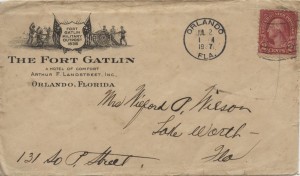 FORT
GATLIN
MILITARY
OUTPOST
1838
THE FORT GATLIN
A HOTEL OF COMFORT
ARTHUR F. LANDSTREET, INC.
ORLANDO, FLORIDA
ORLANDO
FLA.
Mrs A. Wilson
Lake Worth -
Fla
131 So P Street.